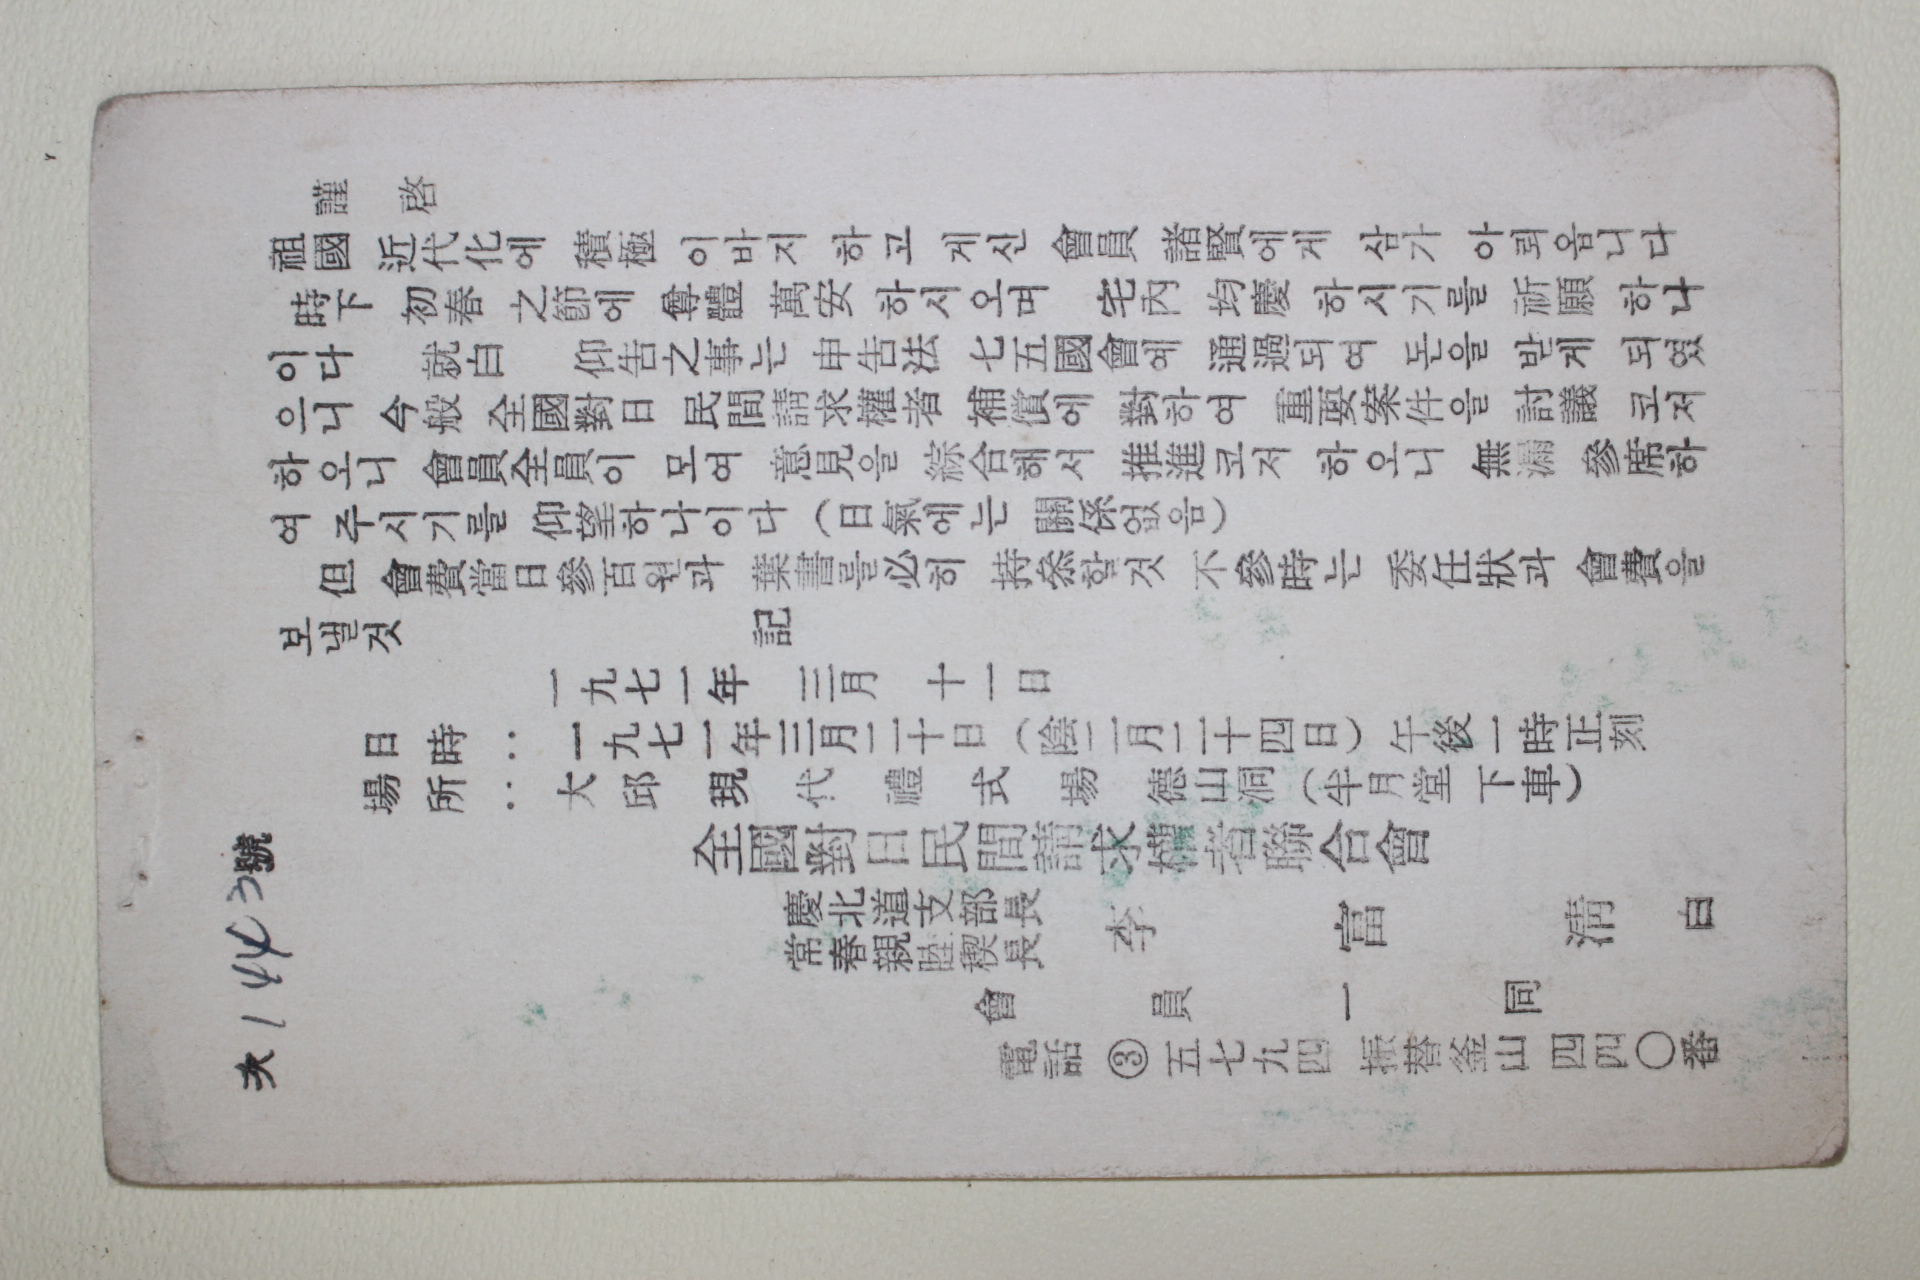 謹啓
祖國 近代化에 積極 이바지 하고 게신 會員 諸賢에게 삼가 아뢰옵니다
時下 初春 之節에 尊體 萬安 하시오며 宅內 均慶 하시기를 祈願 하나
이다 就白 仰告之事는 申告法 七五國會에 通過되여 돈을 받게 되였
으니 今般 全國對日 民間請求權者 補償에 對하여 重要案件을 討議 코저
하오니 會員全員이 모여 意見을 綜合해서 推進코저 하오니 無漏 參席하
여 주시기를 仰望하나이다 (日氣에는 關係없음)
但 會費當日參百원과 葉書를必히 持叅할것 不參時는 委任狀과 會費을
보낼것
記
一九七一年 三月 十一日
日時 : 一九七一年三月二十日 (陰二月二十四日) 午後一時正刻
場所 : 大邱 現代禮式場 德山洞 (半月堂 下車)
全國對日民間請求權者聯合會
慶北道支部長
常春親睦稧長
李富淸 白
會員一同
電話 ③五七九四 振替釜山四四〇番
大1443號